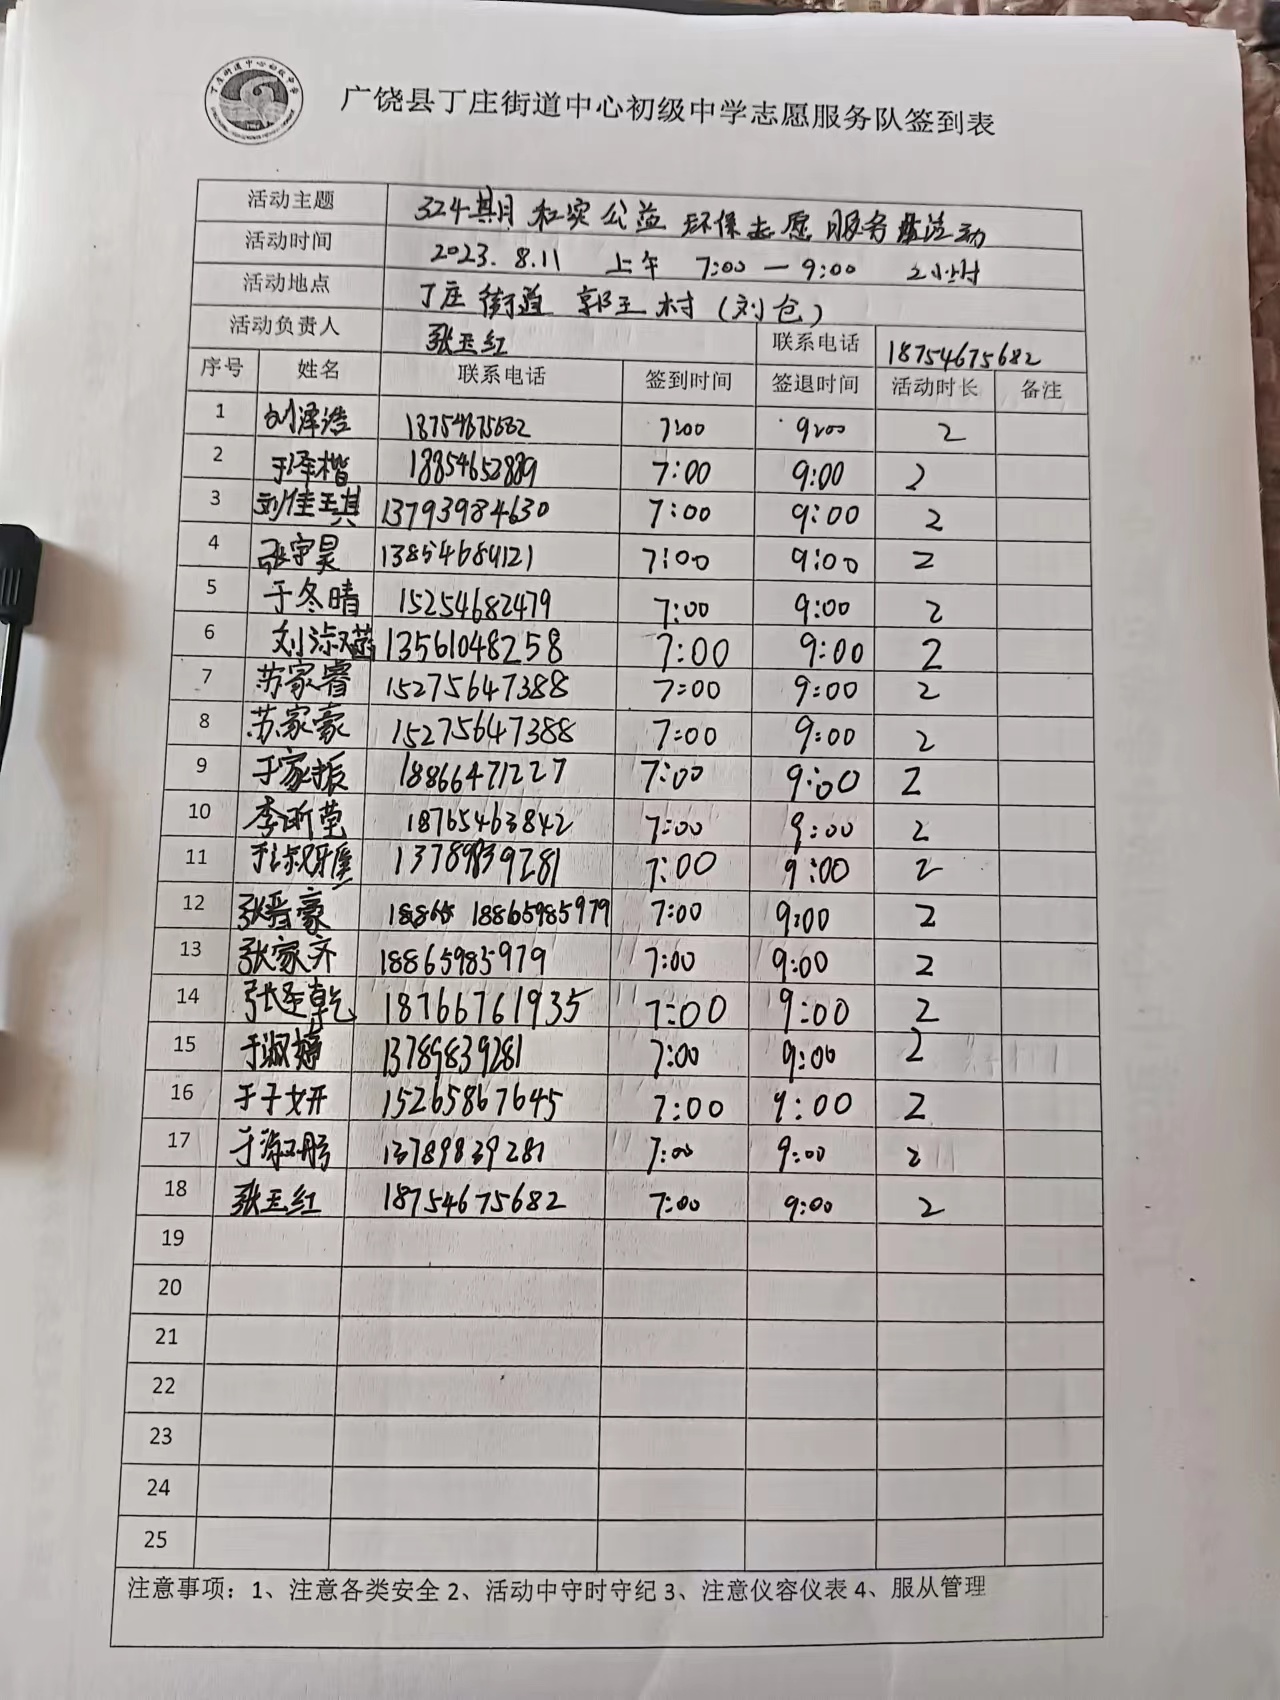 广饶县丁庄街道中心初级中学志愿服务队签到表
活动主题 324期 和实公益 环保志愿服务 活动
活动时间 2023.8.11 上午 7:00—9:00 2小时
活动地点 丁庄街道 郭王村(刘仓)
活动负责人 张玉红 联系电话 18754675682
序号 姓名 联系电话 签到时间 签退时间 活动时长 备注
1 刘泽浩 18754675682 7:00 9:00 2
2 于泽楷 18854652889 7:00 9:00 2
3 刘佳琪 13793984630 7:00 9:00 2
4 张宇昊 13854684121 7:00 9:00 2
5 于冬晴 15254682479 7:00 9:00 2
6 刘淑菡 13561048258 7:00 9:00 2
7 苏家睿 15275647388 7:00 9:00 2
8 苏家豪 15275647388 7:00 9:00 2
9 于家振 18866471227 7:00 9:00 2
10 李昕莹 18765463842 7:00 9:00 2
11 13789839281 7:00 9:00 2
12 张晋豪 18865985979 7:00 9:00 2
13 张家齐 18865985979 7:00 9:00 2
14 张圣乾 18766761935 7:00 9:00 2
15 于淑婷 13789839281 7:00 9:00 2
16 于子妍 15265867645 7:00 9:00 2
17 于淑彤 13789839281 7:00 9:00 2
18 张玉红 18754675682 7:00 9:00 2
19
20
21
22
23
24
25
注意事项：1、注意各类安全 2、活动中守时守纪 3、注意仪容仪表 4、服从管理